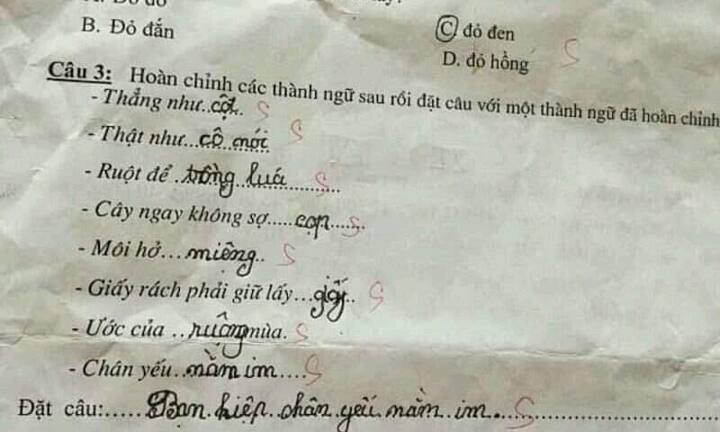 B. Đỏ đắn
C đỏ đen
D. đỏ hồng S
Câu 3: Hoàn chỉnh các thành ngữ sau rồi đặt câu với một thành ngữ đã hoàn chỉnh
- Thẳng như..cột.. S
- Thật như...cô mới S
- Ruột để ..trồng luá............ S
- Cây ngay không sợ.....cọp...... S
- Môi hở...miệng.. S
- Giấy rách phải giữ lấy...giấy.. S
- Ước của ..ruộng mùa. S
- Chân yếu..nằm im.... S
Đặt câu:.....Bạn hiệp chân yếu nằm im. S